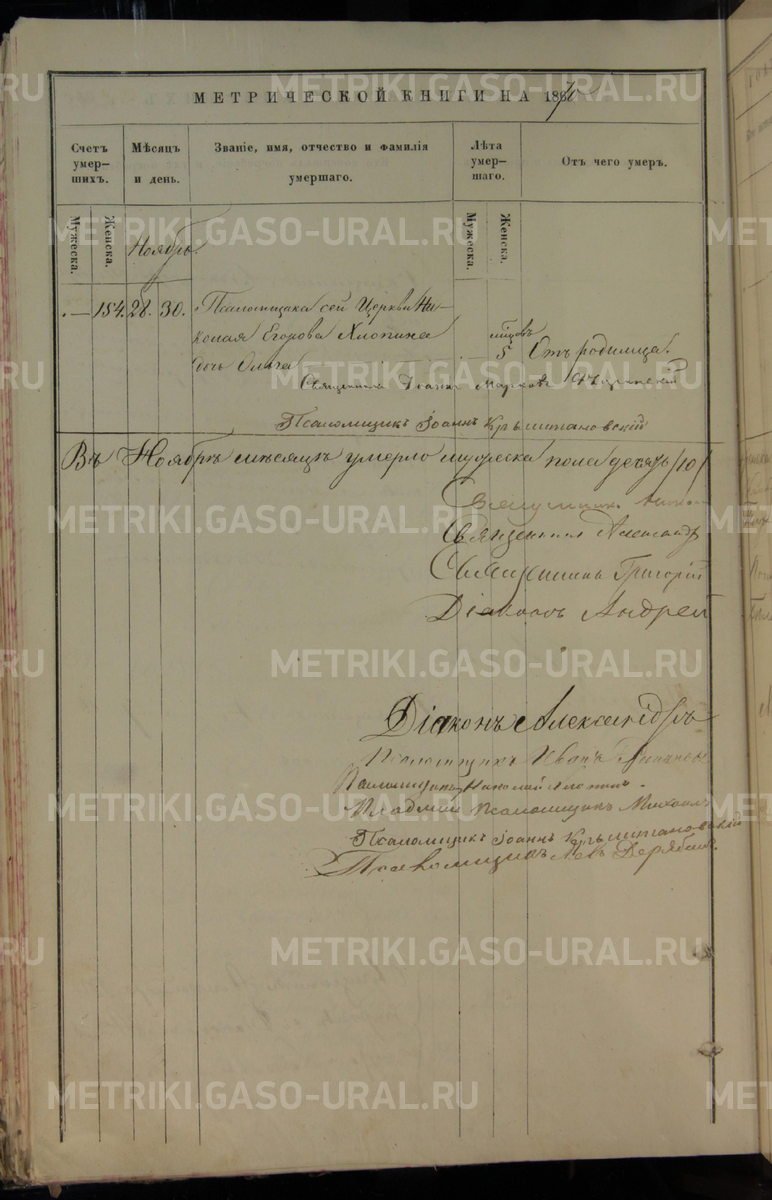 МЕТРИЧЕСКОЙ КНИГИ НА 18
Счетъ умер-шихъ.
Мѣсяцъ и день.
Званіе, имя, отчество и фамилія умершаго.
Лѣта умер-шаго.
Отъ чего умеръ.
Мужеска.
Женска.
Мужеска.
Женска.
Ноябрь.
154. 28. 30. Псаломщика сей Церкви Ни-
колая Егорова Хлопина
дочь Ольга
мѣсяцевъ
5 Отъ родимца.
Священникъ Іоаннъ
Псаломщикъ Іоаннъ
Въ Ноябрѣ мѣсяцѣ умерло мужеска пола десять /10/
Священникъ
Священникъ Александръ
Священникъ Григорій
Діаконъ Андрей
Діаконъ Александръ
Псаломщикъ Иванъ
Псаломщикъ Николай Хлопинъ.
Младшій псаломщикъ Михаилъ
Псаломщикъ Іоаннъ
Псаломщикъ Левъ Дерябинъ.
METRIKI.GASO-URAL.RU